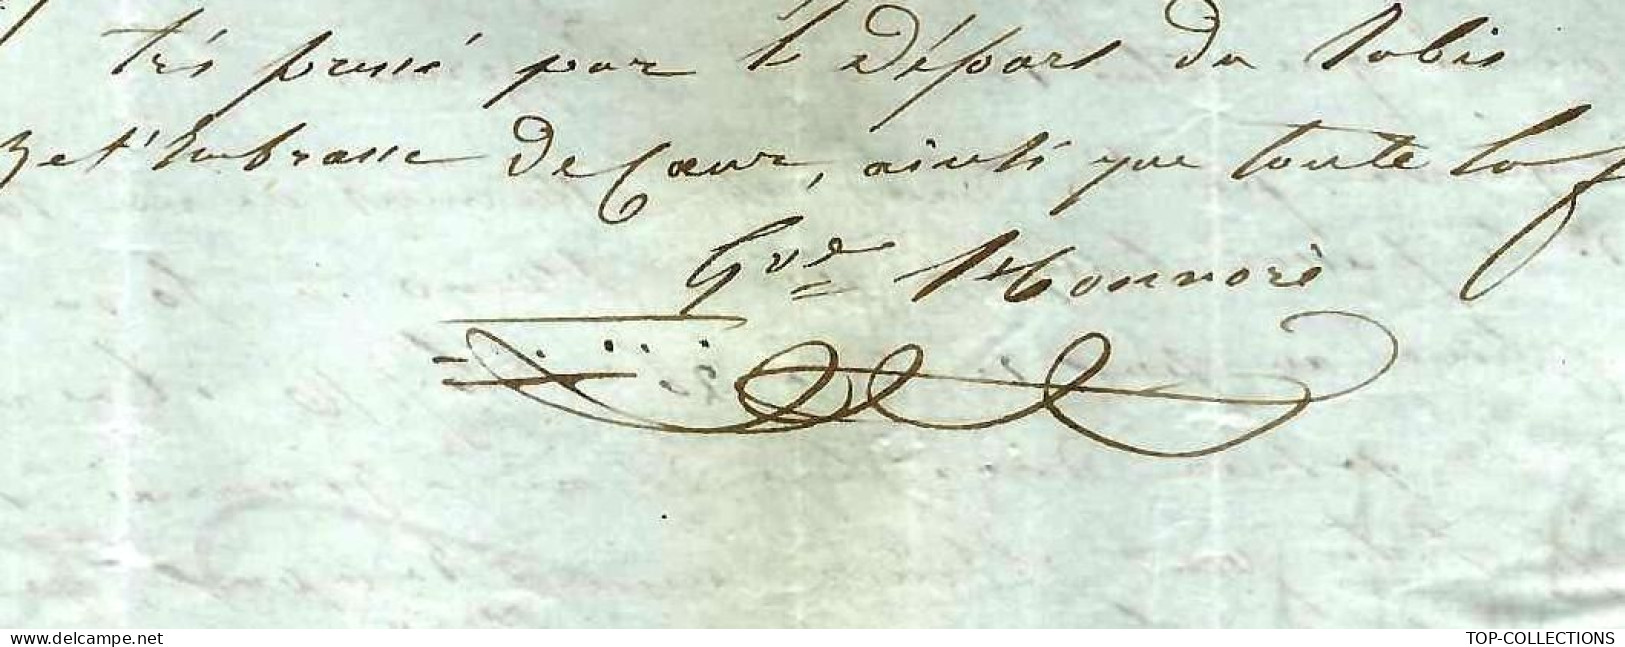 très pressé par le départ du
et t'embrasse de Coeur, ainsi que toute la f
Gve St honnoré
www.delcampe.net
TOP-COLLECTIONS